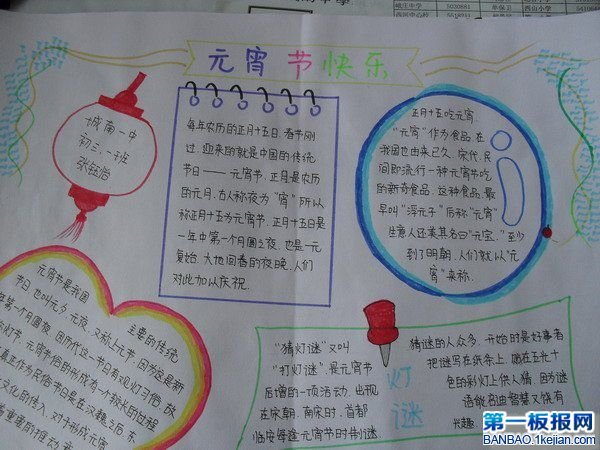 元宵节快乐
城南一中
初三.一班
每年农历的正月十五日.春节刚
过.迎来的就是中国的传统
节日——元宵节.正月是农历
的元月.古人称夜为"宵"所以
称正月十五为元宵节.正月十五日是
一年中第一个月圆之夜.也是一元
复始.大地回春的夜晚.人们
对此加以庆祝.
正月十五吃元宵
"元宵"作为食品.在
我国也由来已久.宋代.民
间即流行一种元宵节吃
的新奇食品.这种食品.最
早叫"浮元子"后称"元宵"
生意人还美其名曰"元宝."至少
到了明朝.人们就以"元
宵"来称.
元宵节是我国
主要的传统
节日.也叫元夕.元夜.又称上元节.因为这是新
年第一个月圆夜.因历代这一节日有观灯习俗.故
称灯节.元宵节俗的形成为一个较长的过程
真正作为民俗节日是在汉魏之后.东
文化的传入.对于形成元宵
有重要的推动
"猜灯谜"又叫
"打灯谜".是元宵节
后增的一项活动.出现
在宋朝.南宋时.首都
临安每逢元宵节时制谜.
灯
谜
猜谜的人众多.开始时是好事者
把谜写在纸条上.贴在五光十
色的彩灯上供人猜.因为谜
语能启迪智慧又饶有
兴趣.
第一板报网
BANBAO.1kejian.com